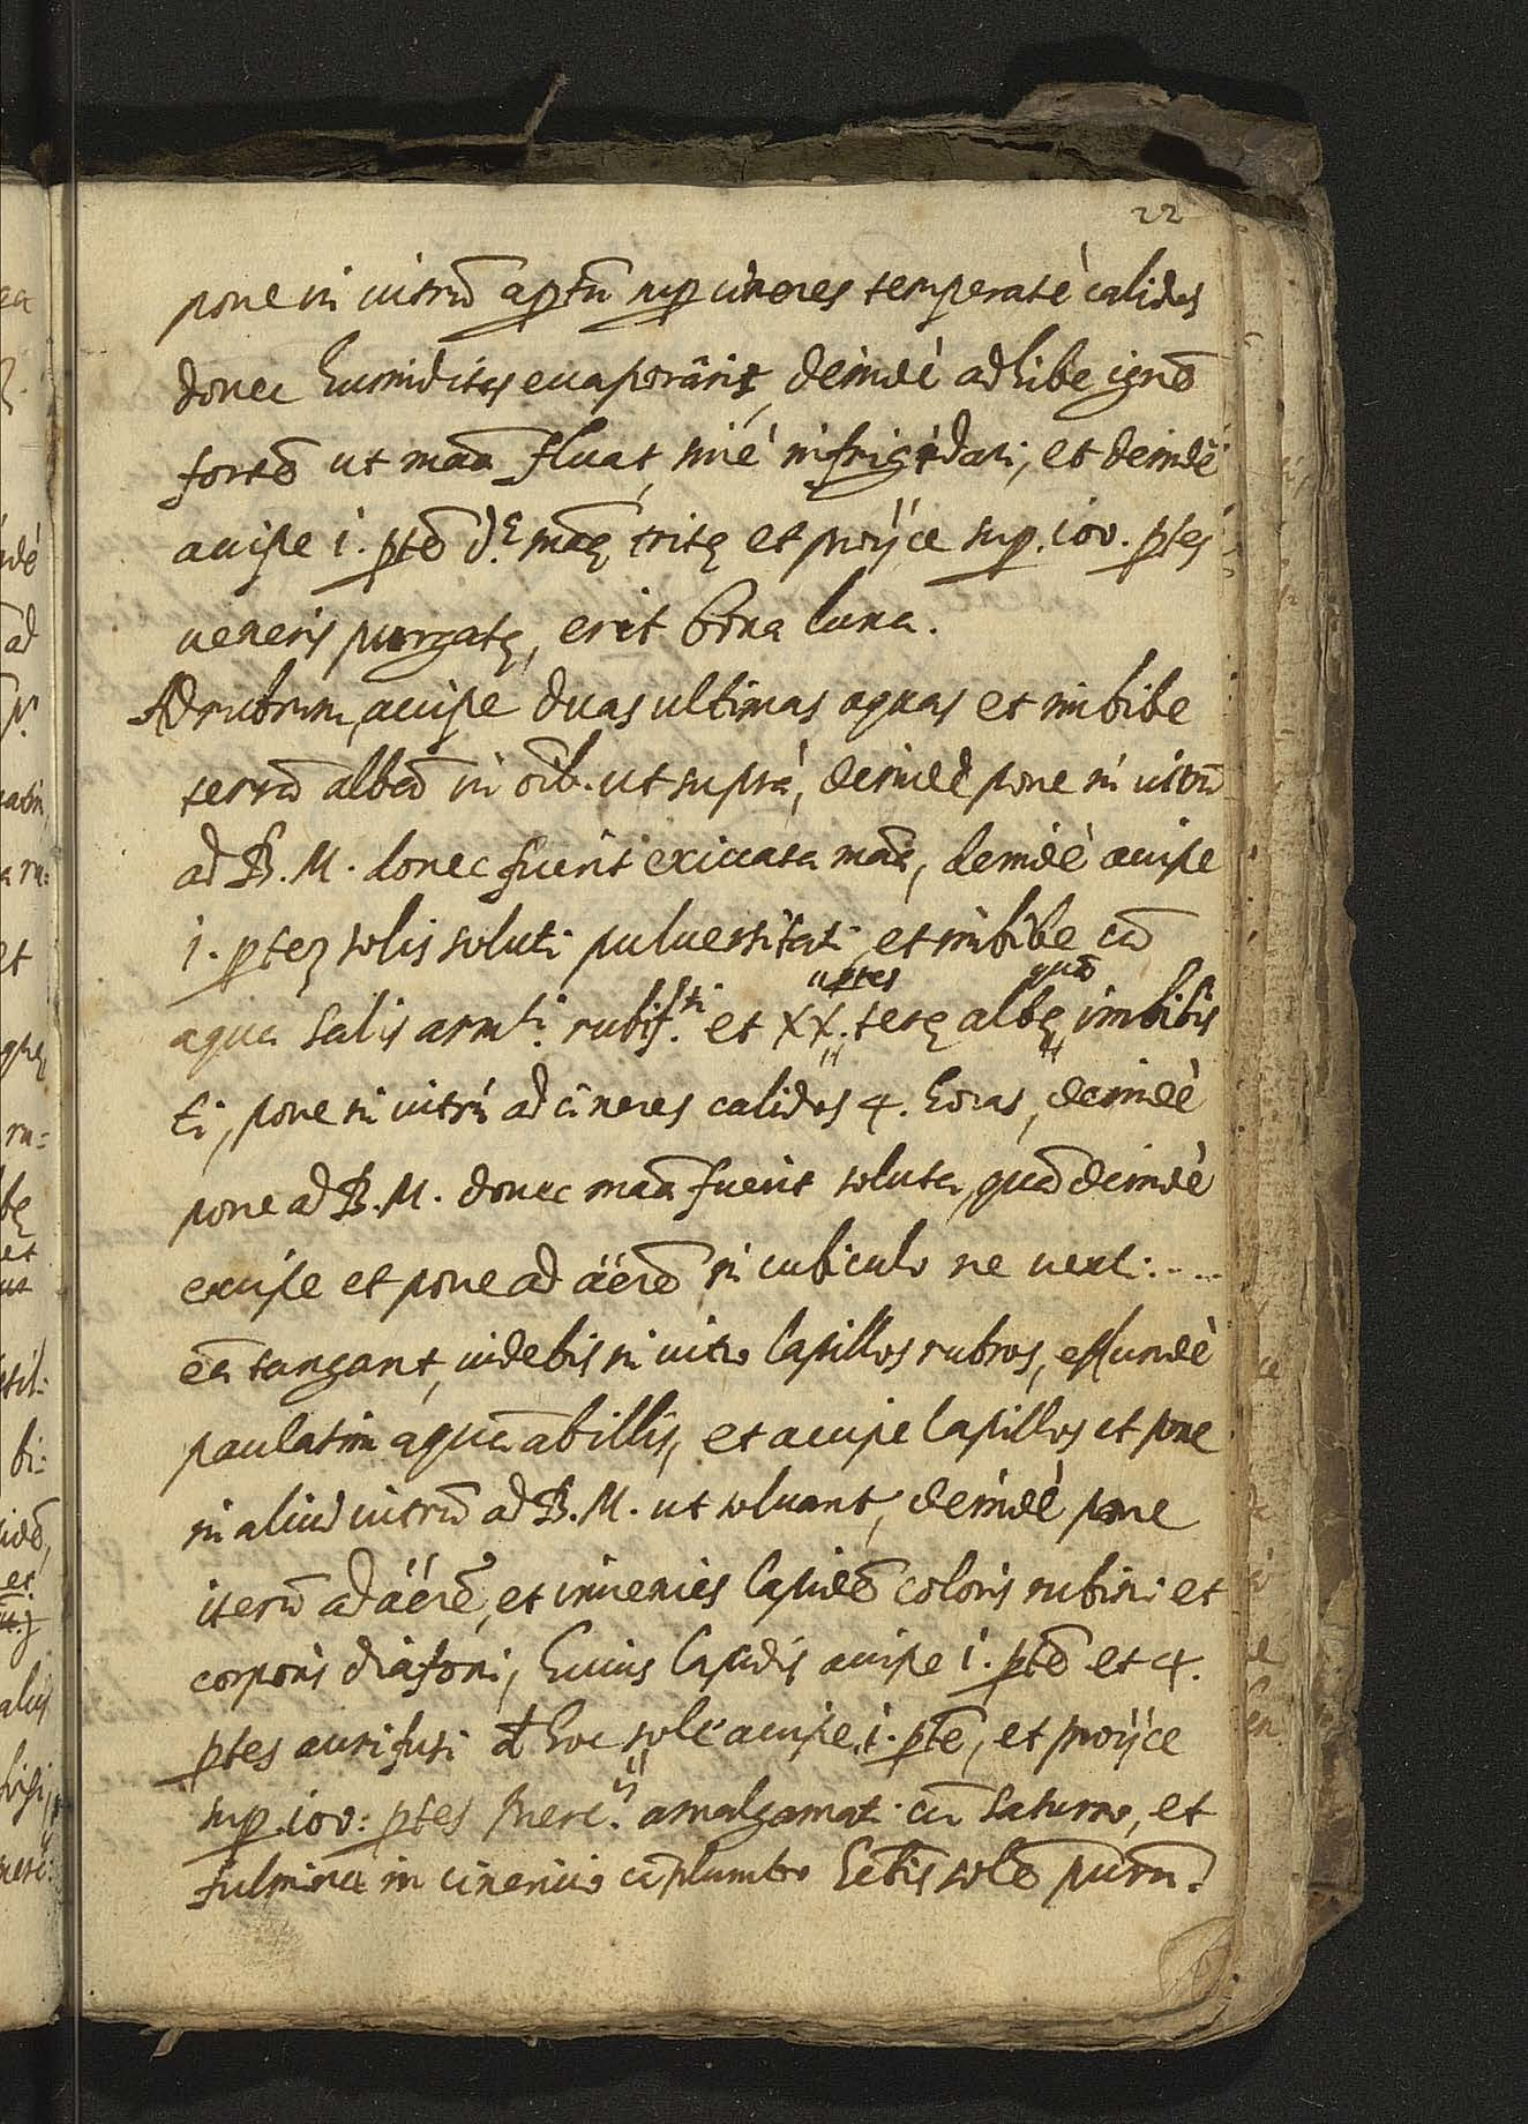 22
pone in uitrũ aptũ sup cineres temperatè calidos
donec humiditas euaporârit, deindè adhibe ignẽ
fortẽ ut maã fluat, sine infrigidari, et deindè
accipe i. ptẽ d.ᵉ maę̃ tritę et proijce sup. 100. ptes
ueneris purgatę, erit bona luna.
Ad rubrum, accipe duas ultimas aquas et imbibe
terrã albã in oĩb. ut suprà, deindè pone in uitrũ
ad B. M. donec fuerit exiccata maã, deindè accipe
i. ptez solis soluti puluerizati et imbibe cũ
aqua salis armⁱ. rubif.ᵗⁱ et XX. ptes terę albę quã imbibis
ti, pone in uitrũ ad cineres calidos 4. horas, deindè
pone ad B. M. donec maã fuerit soluta, quã deindè
excipe et pone ad äerẽ in cubiculo ne uenti.....
eã tangant, uidebis in uitro lapillos rubros, effundè
paulatim aquã ab illis, et accipe lapillos et pone
in aliud uitrũ ad B. M. ut soluant, deindè pone
iterũ ad äerẽ, et inuenies lapidẽ coloris rubini et
corporis diafoni, huius lapidis accipe i. ptẽ et 4.
ptes auri fusi et hoc sole accipe i. ptẽ, et proijce
sup. 100: ptes Merc.ij amalgamati cũ saturno, et
fulmina in cinericio cũ plumbo hẽbis solẽ purũ.